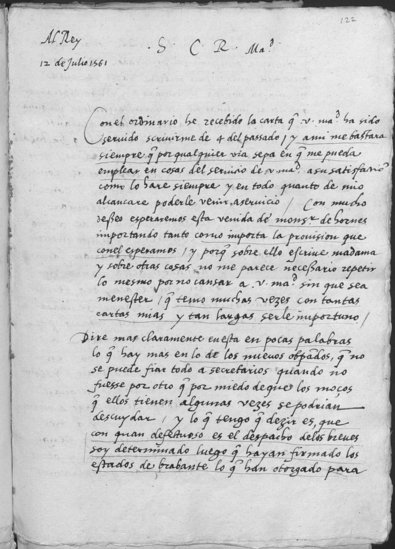 122
Al Rey
12 de Julio 1561
. S. C. R. Ma.d
Con el ordinario he recebido la carta q̃ v. ma.d ha sido
seruido scriuirme de 4 del passado / y a mi me bastara
siempre q̃ por qualquier via sepa en q̃ me pueda
emplear en cosas del seruicio de v. ma.d a su satisfaciõ
como lo hare siempre y en todo quanto de mio
alcançare poderle venir a seruicio / Con mucho
desseo esperaremos esta venida de mons.r de hornes
importando tanto como importa la prouision que
con el esperamos / y porq̃ sobre ello escriue madama
y sobre otras cosas no me parece necessario repetir
lo mesmo por no cansar a v. ma.d sin que sea
menester / q̃ temo muchas vezes con tantas
cartas mias y tan largas serle importuno /
Dire mas claramente cuesta en pocas palabras
lo q̃ hay mas en lo de los nueuos obp̃ados, q̃ no
se puede fiar todo a secretarios quando no
fuesse por otro q̃ por miedo de que los moços
q̃ ellos tienen algunas vezes se podrian
descuydar / y lo q̃ tengo q̃ dezir es, que
con quan defetuoso es el despacho de los bienes
soy determinado luego q̃ hayan firmado los
estados de brabante lo q̃ han otorgado para